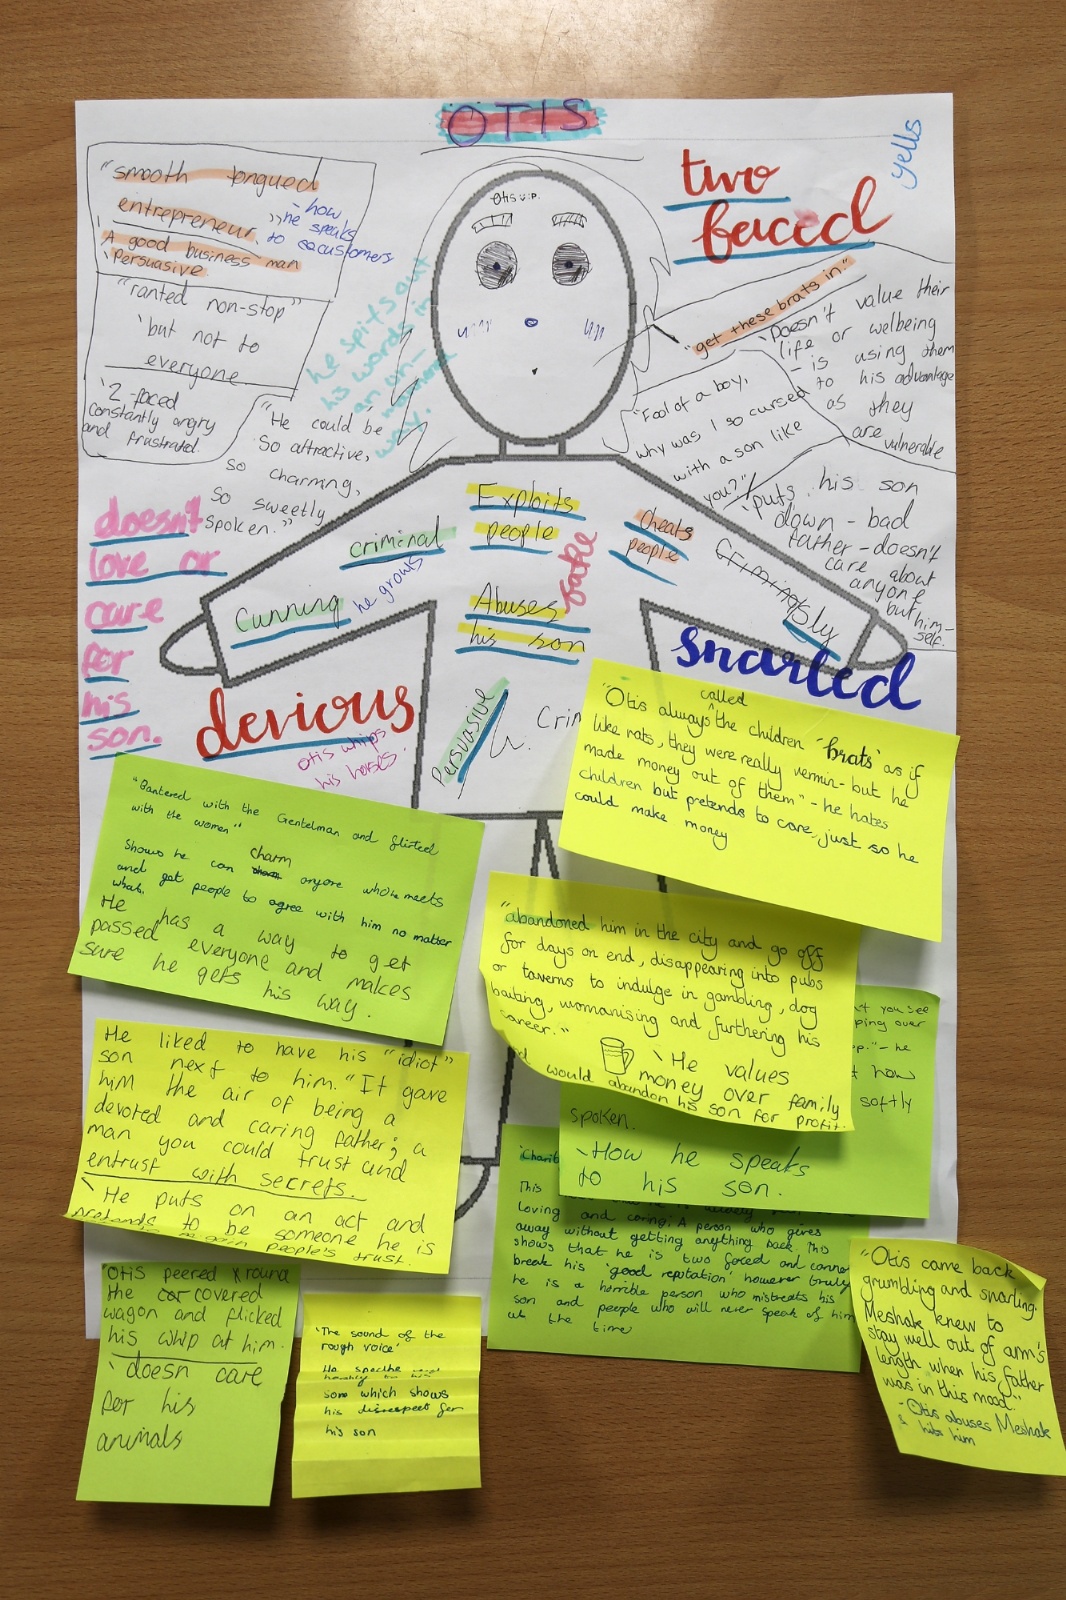 OTIS
"smooth tongued
entrepreneur"
- how
he speaks
to cacustomers
A good business man
'Persuasive
"ranted non-stop"
'but not to
everyone
'2-faced
constantly angry
and frustrated.
he spits out
his words in
an un-
way.
"He could be
so attractive,
so charming,
so sweetly
spoken."
Otis v.i.p.
two
faced
yells
"get these brats in."
'Doesn't value their
life or welbeing
- is using them
to his advantage
as they
are vulnerable
"Fool of a boy,
why was I so cursed
with a son like
you?"
'puts his son
down - bad
father - doesn't
care about
anyone
but him-
self.
doesn't
love or
care
for
his
son.
criminal
he growls
Cunning
Exploits
people
fake
Abuses
his son
Cheats
people
Criminaly
Sly
snarled
devious
Otis whips
his horses.
Persuasive
Crim
"Otis always called the children 'brats' as if
like rats, they were really vermin - but he
made money out of them" - he hates
children but pretends to care, just so he
could make money
"Bantered with the Gentelman and flirted
with the women"
Shows he can charm anyone who he meets
and get people to agree with him no matter
what.
He has a way to get
passed everyone and makes
sure he gets his way.
"abandoned him in the city and go off
for days on end, disappearing into pubs
or taverns to indulge in gambling, dog
baiting, womanising and furthering his
career."
'He values
money over family
would abandon his son for profit.
He liked to have his "idiot"
son next to him. "It gave
him the air of being a
devoted and caring father; a
man you could trust and
entrust with secrets.
'He puts on an act and
pretends to be someone he is
to gain people's trust.
you see
ping over
op." - he
how
softly
spoken.
'How he speaks
to his son.
'Charit
This
loving and caring; A person who gives
away without getting anything back. This
shows that he is two faced and cannot
break his 'good reputation' however truly
he is a horrible person who mistreats his
son and people who will never speak of him
at the time
Otis peered round
the covered
wagon and flicked
his whip at him.
'doesn care
for his
animals
'The sound of the
rough voice'
He
son which shows
his disrespect for
his son
"Otis came back
grumbling and snarling.
Meshak knew to
stay well out of arm's
length when his father
was in this mood."
- Otis abuses Meshak
& hits him